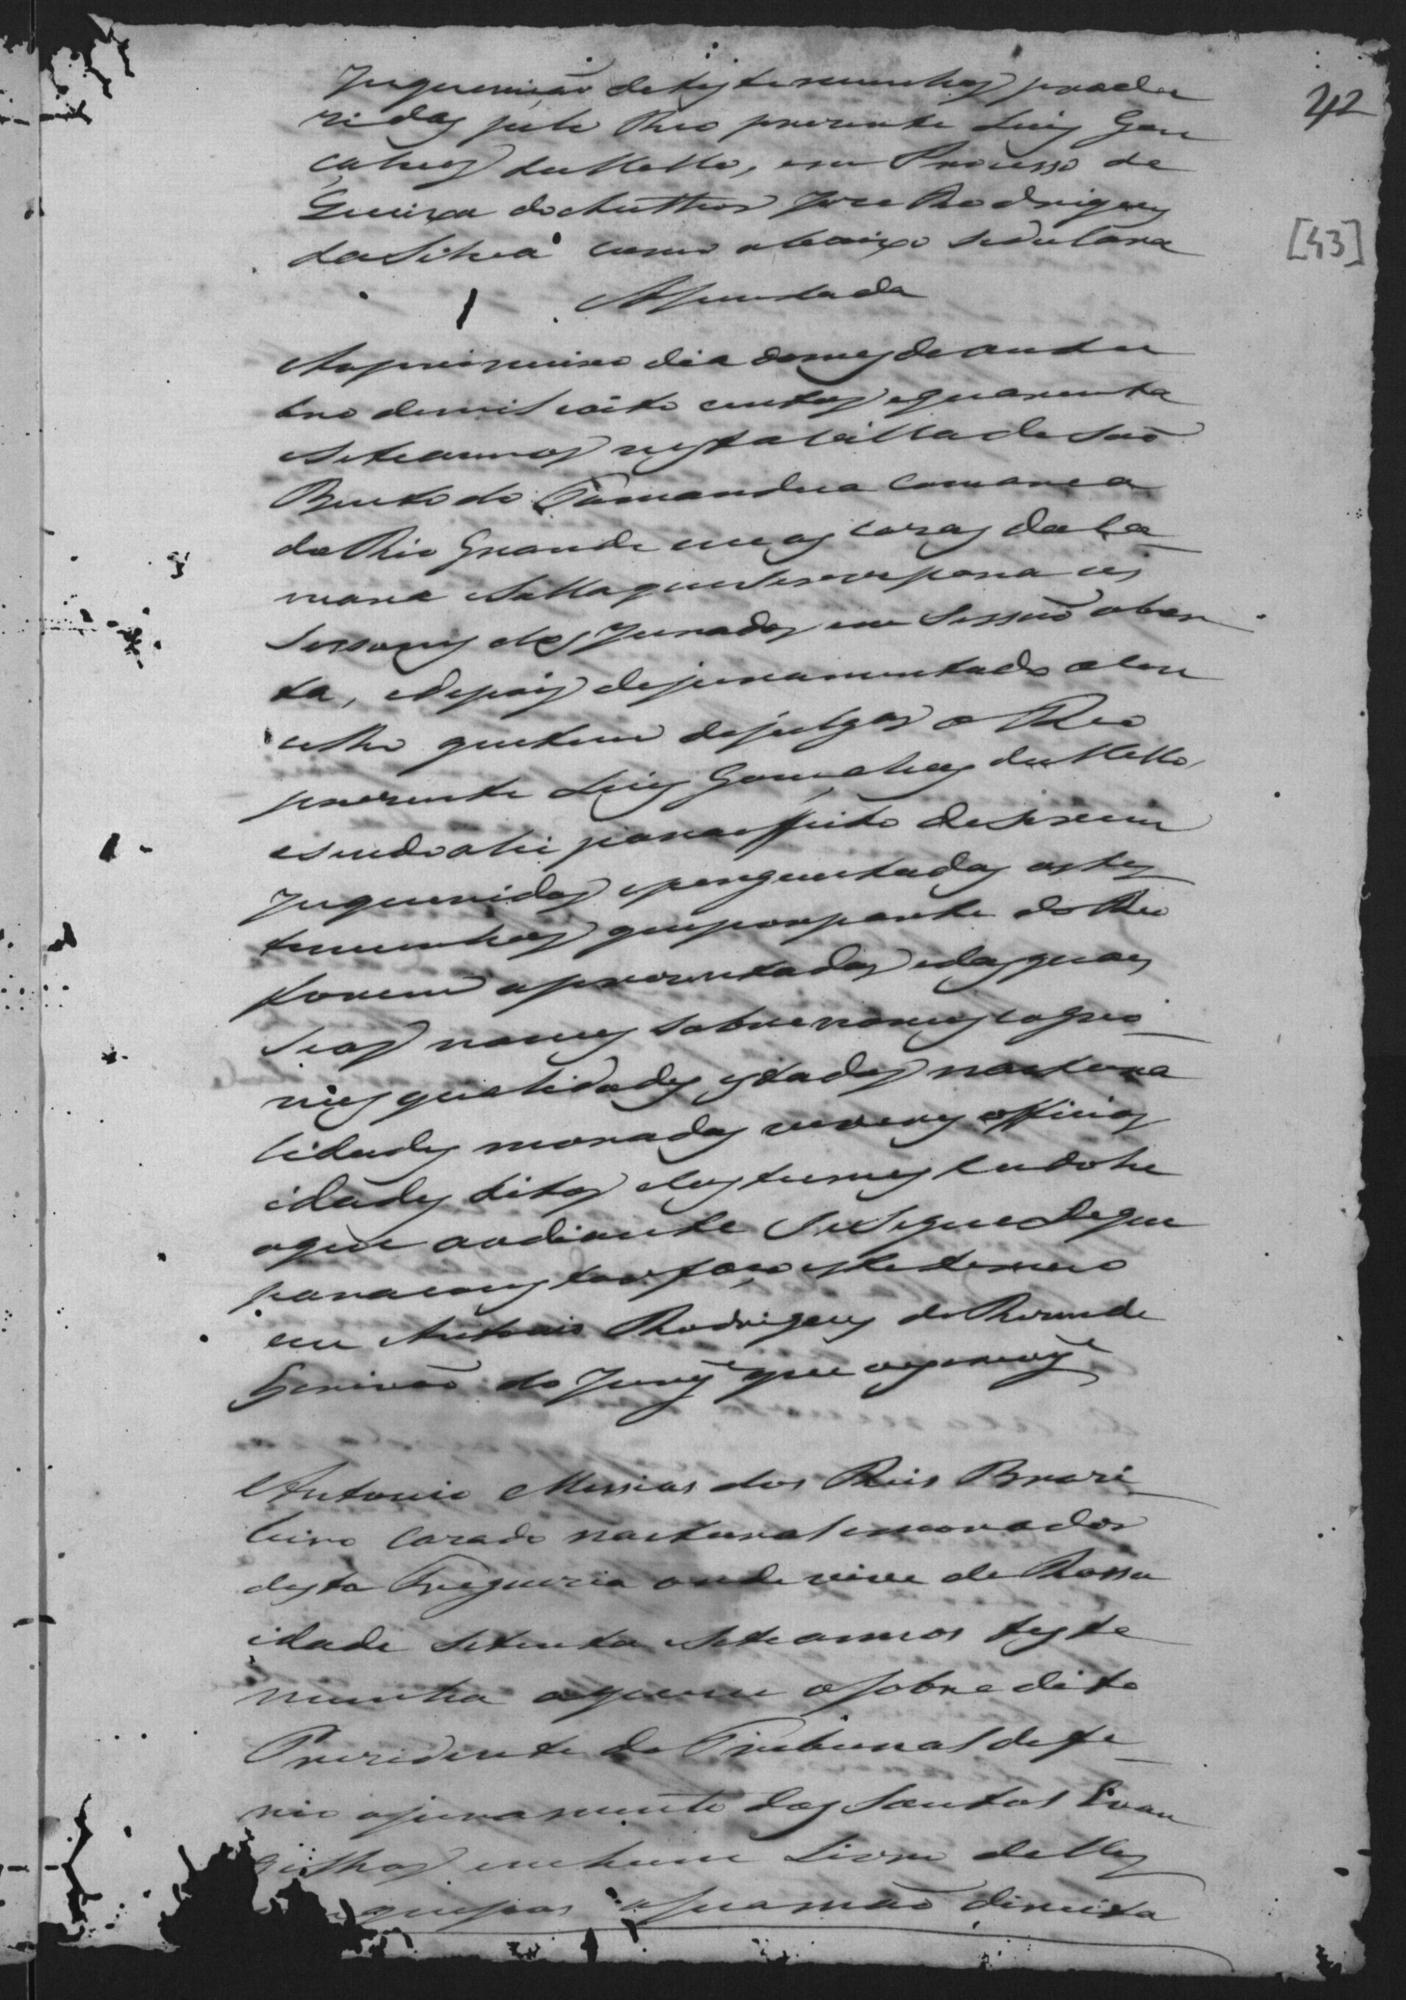 42
[43]
Inquirição de testemunhas produ
zidas pelo Reo prezente Luis Gon
çalves de Mello, em Processo de
Queixa do Author Joze Rodrigues
da Silva como abaixo sedeclara
Assentada
Aoprimeiro dia domes de outu
bro demil oito centos equarenta
eseteannos nesta Villa de São
Bento do Tamandua Comarca
do Rio Grande em as cazas da Ca
mara e Salla que Serve para as
Sessoens dos Jurados em Sessão aber
ta, edepois dejuramentado o Con
celho quetem dejulgar o Reo
prezente Luis Gonçalves de Mello,
esendo ahi para effeito deserem
Inqueridas eperguntadas astes
temunhas que por parte do Reo
forem aprezentadas edas quaes
Seos nomes Sobrenomes cogno
mes qualidades estados natura
lidades moradas viveres officios
idades ditos costumes hé tudo
oque aodiante Se Segue Deque
paraconstar faço este termo
eu Antonio Rodrigues de Rezende
Escrivão do Jury que oescrevy
Antonio Messias dos Reis Brazi
leiro Cazado natural emorador
desta Freguezia onde vive de Rossa
idade Setenta eseteannos teste
munha aquem o sobredito
Prezidente do Tribunal defe
rio ojuramento dos Santos Evan
gelhos em hum Livro delles
emque pos a sua mão direita